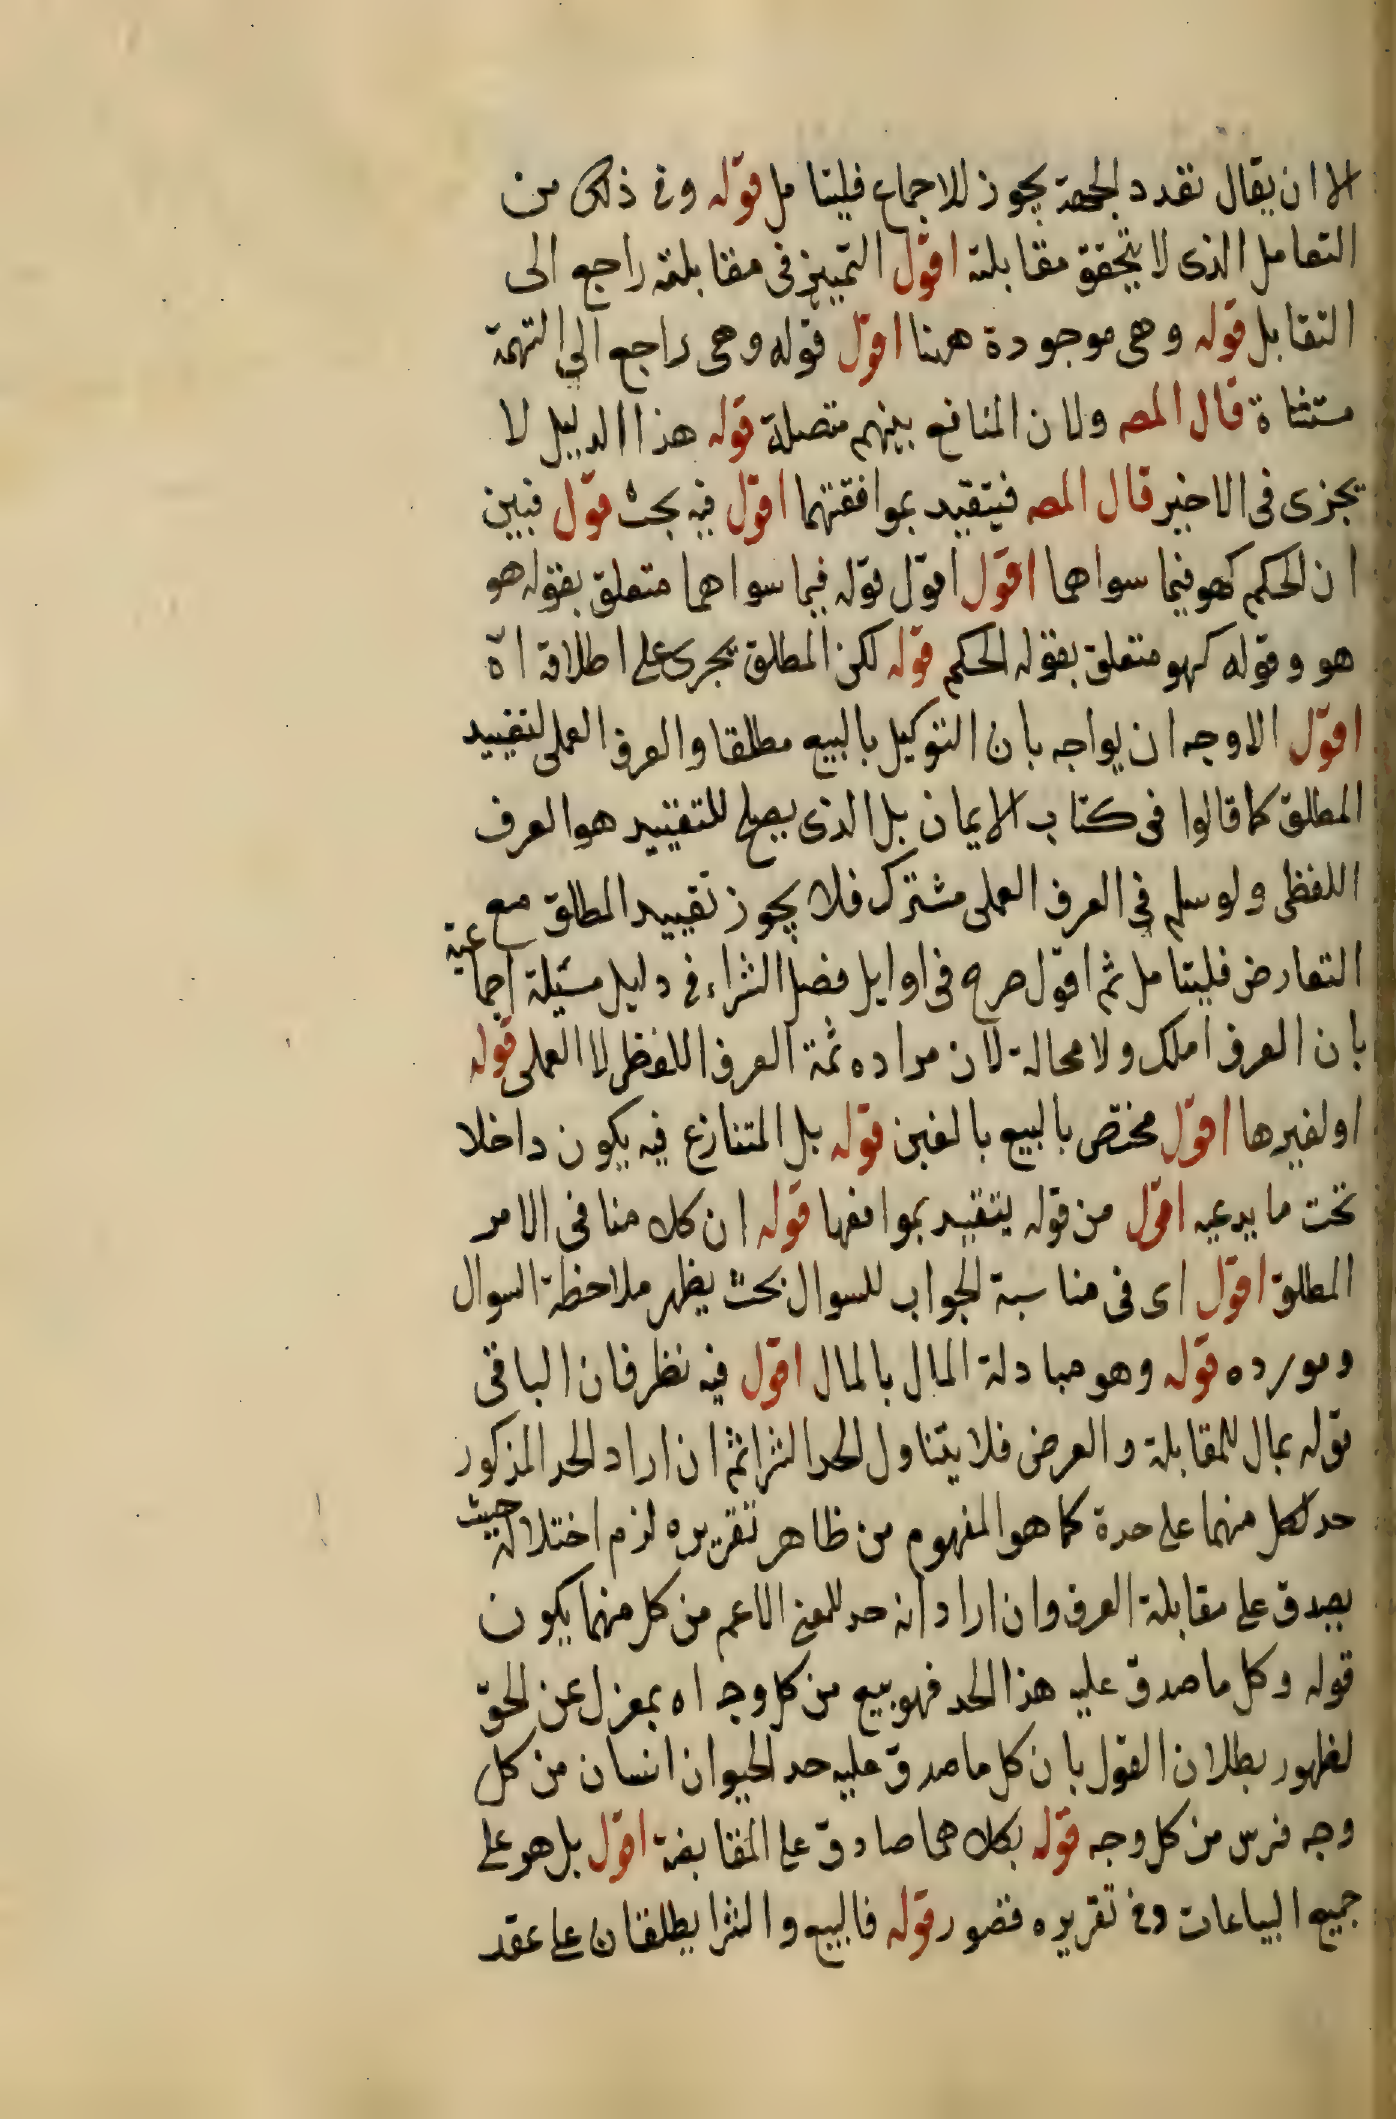 الا ان يقال تعدد الجهة يجوز للاجماع فليتامل قوله وفى ذلك من
التعامل الذى لا يتحقق مقابلة اقول التمييز فى مقابلته راجع الى
التقابل قوله وهى موجودة ههنا اقول قوله وهى راجع الى التهمة
مستثناة قال المصـ ولان المنافع بينهم متصلة قوله هذا الدليل لا
يجزى فى الاخير قال المصـ فيتقيد بموافقتهما اقول فيه بحث قول فبين
ان الحكم كهو فيما سواهما اقول اقول قوله فيما سواهما متعلق بقوله هو
هو وقوله كهو متعلق بقوله الحكم قوله لكن المطلق يجرى على اطلاقه اه
اقول الاوجه ان يواجه بان التوكيل بالبيع مطلقا والعرف العملى لتقييد
المطلق كما قالوا فى كتاب الايمان بل الذى يصلح للتقييد هو العرف
اللفظى ولو سلم فى العرف العملى مشترك فلا يجوز تقييد المطلق مع
التعارض فليتامل ثم اقول صرح فى اوايل فصل الشراء فى دليل مسئلة اجماعية
بان العرف املك ولا محالة لان مراده ثمة العرف اللفظى لا العملى قوله
او لغيرها اقول مختص بالبيع بالغبن قوله بل المتنازع فيه يكون داخلا
تحت ما يدعيه اقول من قوله يتقيد بمواقعها قوله ان كلامنا فى الامر
المطلق اقول اى فى مناسبة الجواب للسوال بحث يظهر ملاحظة السوال
ومورده قوله وهو مبادلة المال بالمال اقول فيه نظر فان الباقى
قوله بمال للمقابلة والعرض فلا يتناول الحد الشرا ثم ان اراد الحد المذكور
حد لكل منهما على حدة كما هو المفهوم من ظاهر تقريره لزم اختلاله حيث
يصدق على مقابلة العرف وان اراد انه حد للمعنى الاعم من كل منهما يكون
قوله وكل ما صدق عليه هذا الحد فهو بيع من كل وجه اه بمعزل عن الحق
لظهور بطلان القول بان كل ما صدق عليه حد الحيوان انسان من كل
وجه فرس من كل وجه قوله بكلاهما صادق على المقايضة اقول بل هو على
جميع البياعات وفى تقريره قصور قوله فالبيع والشرا يطلقان على عقد